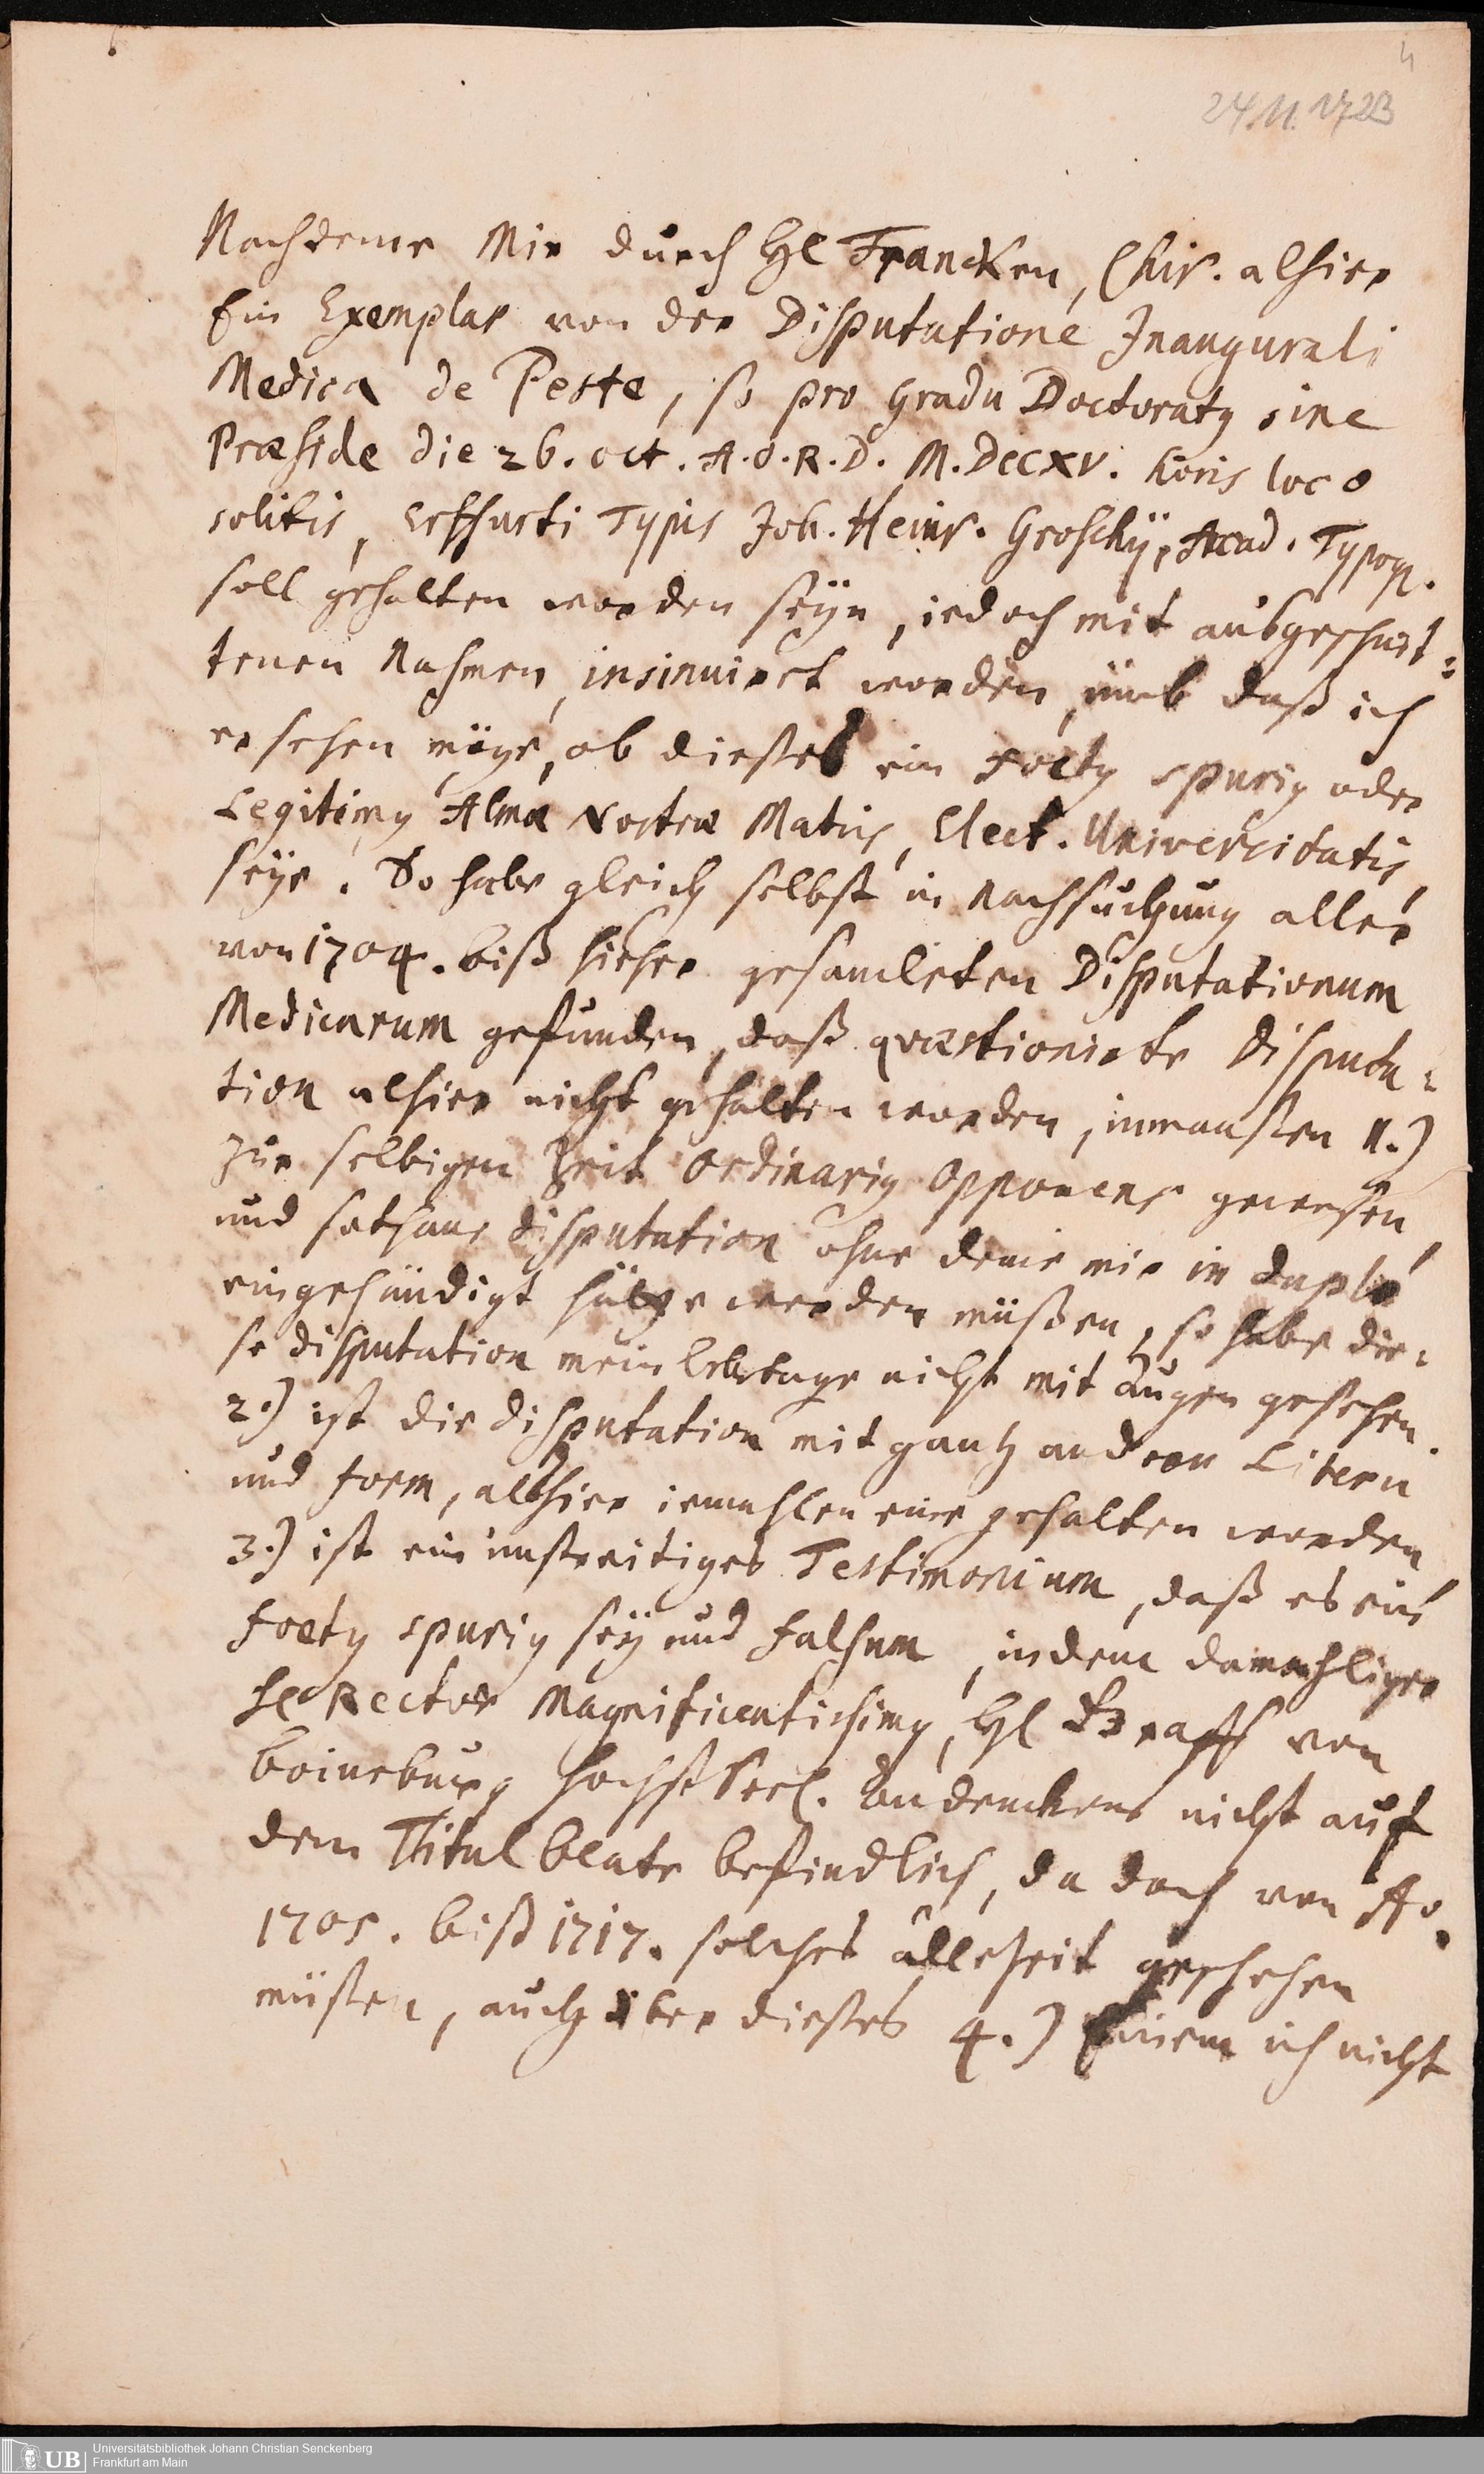 4
24.11.1723
Nachdeme Mir durch Hl Francken, Chir. alhier
Ein Exemplar von der Disputatione Inaugurali
Medica de Peste, so pro Gradu Doctoratus sine
Præside die 26. oct. A.O.R.D. M.DCCXV. horis loco
solitis, Erffurti Typis Joh. Heinr. Groschÿ, Acad. Typogr.
soll gehalten worden seÿn, iedoch mit außgeschnit=
tenen Nahmen, insinuiret worden, umb daß ich
ersehen möge, ob dießes ein Foetus spurius oder
Legitimus Almæ Nostræ Matris, Elect. Universitatis
seÿe. So habe gleich selbst in Nachsuchung aller
von 1704. biß hieher gesamleten Disputationum
Medicarum gefunden, daß quæstionirte Disputa=
tion alhier nicht gehalten worden, inmaaßen 1.)
zur selbigen Zeit Ordinarius Opponens geweßen
und sothane Disputation ohne deme mir in duplo
eingehändigt hätte werden müßen, so habe die=
se disputation mein lebetage nicht mit Augen gesehen.
2.) ist die disputation mit gantz andren Litern
und Form, alßhier iemahlen eine gehalten worden
3.) ist ein unstreitiges Testimonium, daß es ein
Foetus spurius seÿ und falsum, indem damahliger
Hl Rector Magnificentissimus, Hl Graff von
Boineburg höchst Seel. Andenckens nicht auf
dem Titul blate befindlich, da doch von Ao.
1705. biß 1717. solches allezeit geschehen
müßen, auch über dießes 4.) Erinnere ich nicht
UB Universitätsbibliothek Johann Christian Senckenberg
Frankfurt am Main